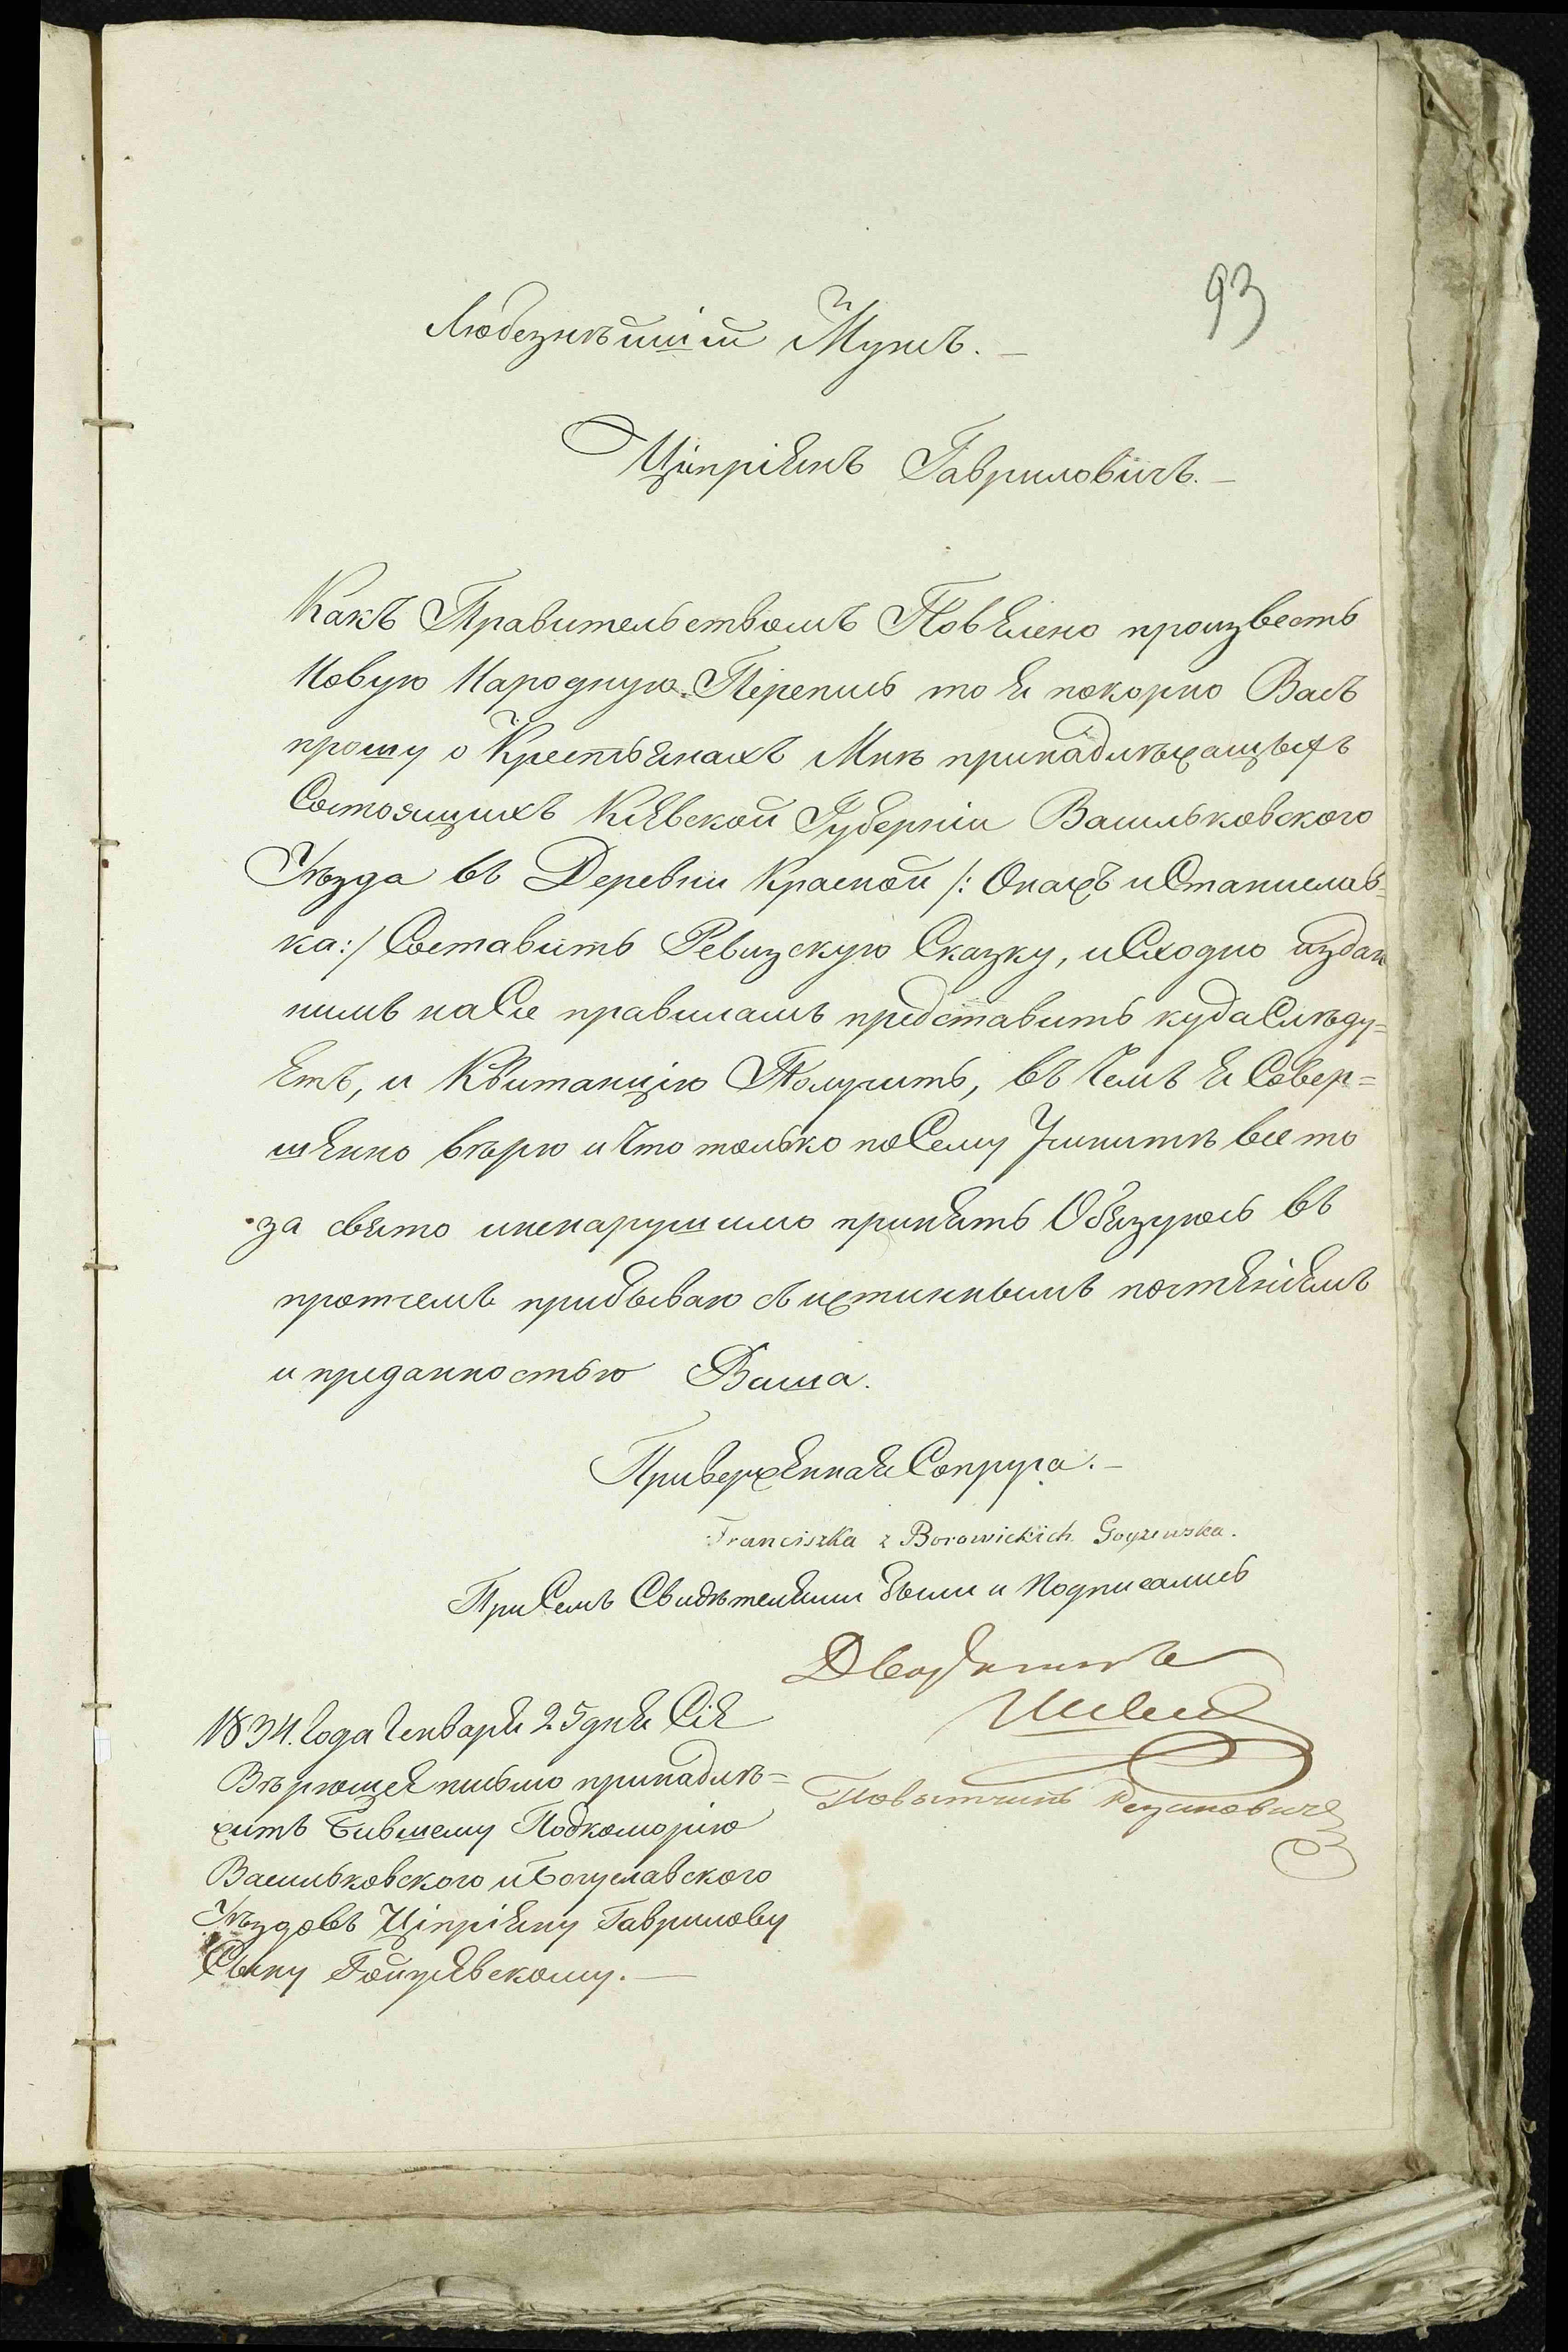 93
Любезнѣйшій Мужъ. —
Ципріянъ Гавриловичъ. —
Какъ Правительствомъ Повелено произвесть
Новую Народную Перепись то я покорно Васъ
прошу о Крестьянахъ Мнѣ принадлѣжащыхъ
Состоящихъ Кіевской Губерніи Васильковского
Уѣзда въ Деревни Красной /: Онажъ и Станислав=
ка:/ Составить Ревизскую Сказку, и Сходно издан
нимъ на Сіе правиламъ представить куда Слѣду=
етъ, и Квитанцію Получить, въ Чемъ я Совер=
шенно вѣрю и Что только по Сему Учините все то
за свято и ненарушимо принять Обязуюсь въ
протчемъ прибываю съ истиннымъ почтеніемъ
и преданностью Ваша.
Приверженная Супруга. —
Franciszka z Borowickich Goyzewska.
При Семъ Свидѣтелями были и Подписались
Повытчикъ
1834. Года Генваря 25 дня Сіе
Вѣрющее письмо принадлѣ=
житъ Бившему Подкоморію
Васильковского и Богуславского
Уѣздовъ Ципріяну Гаврилову
Сыну Гойжевскому. —